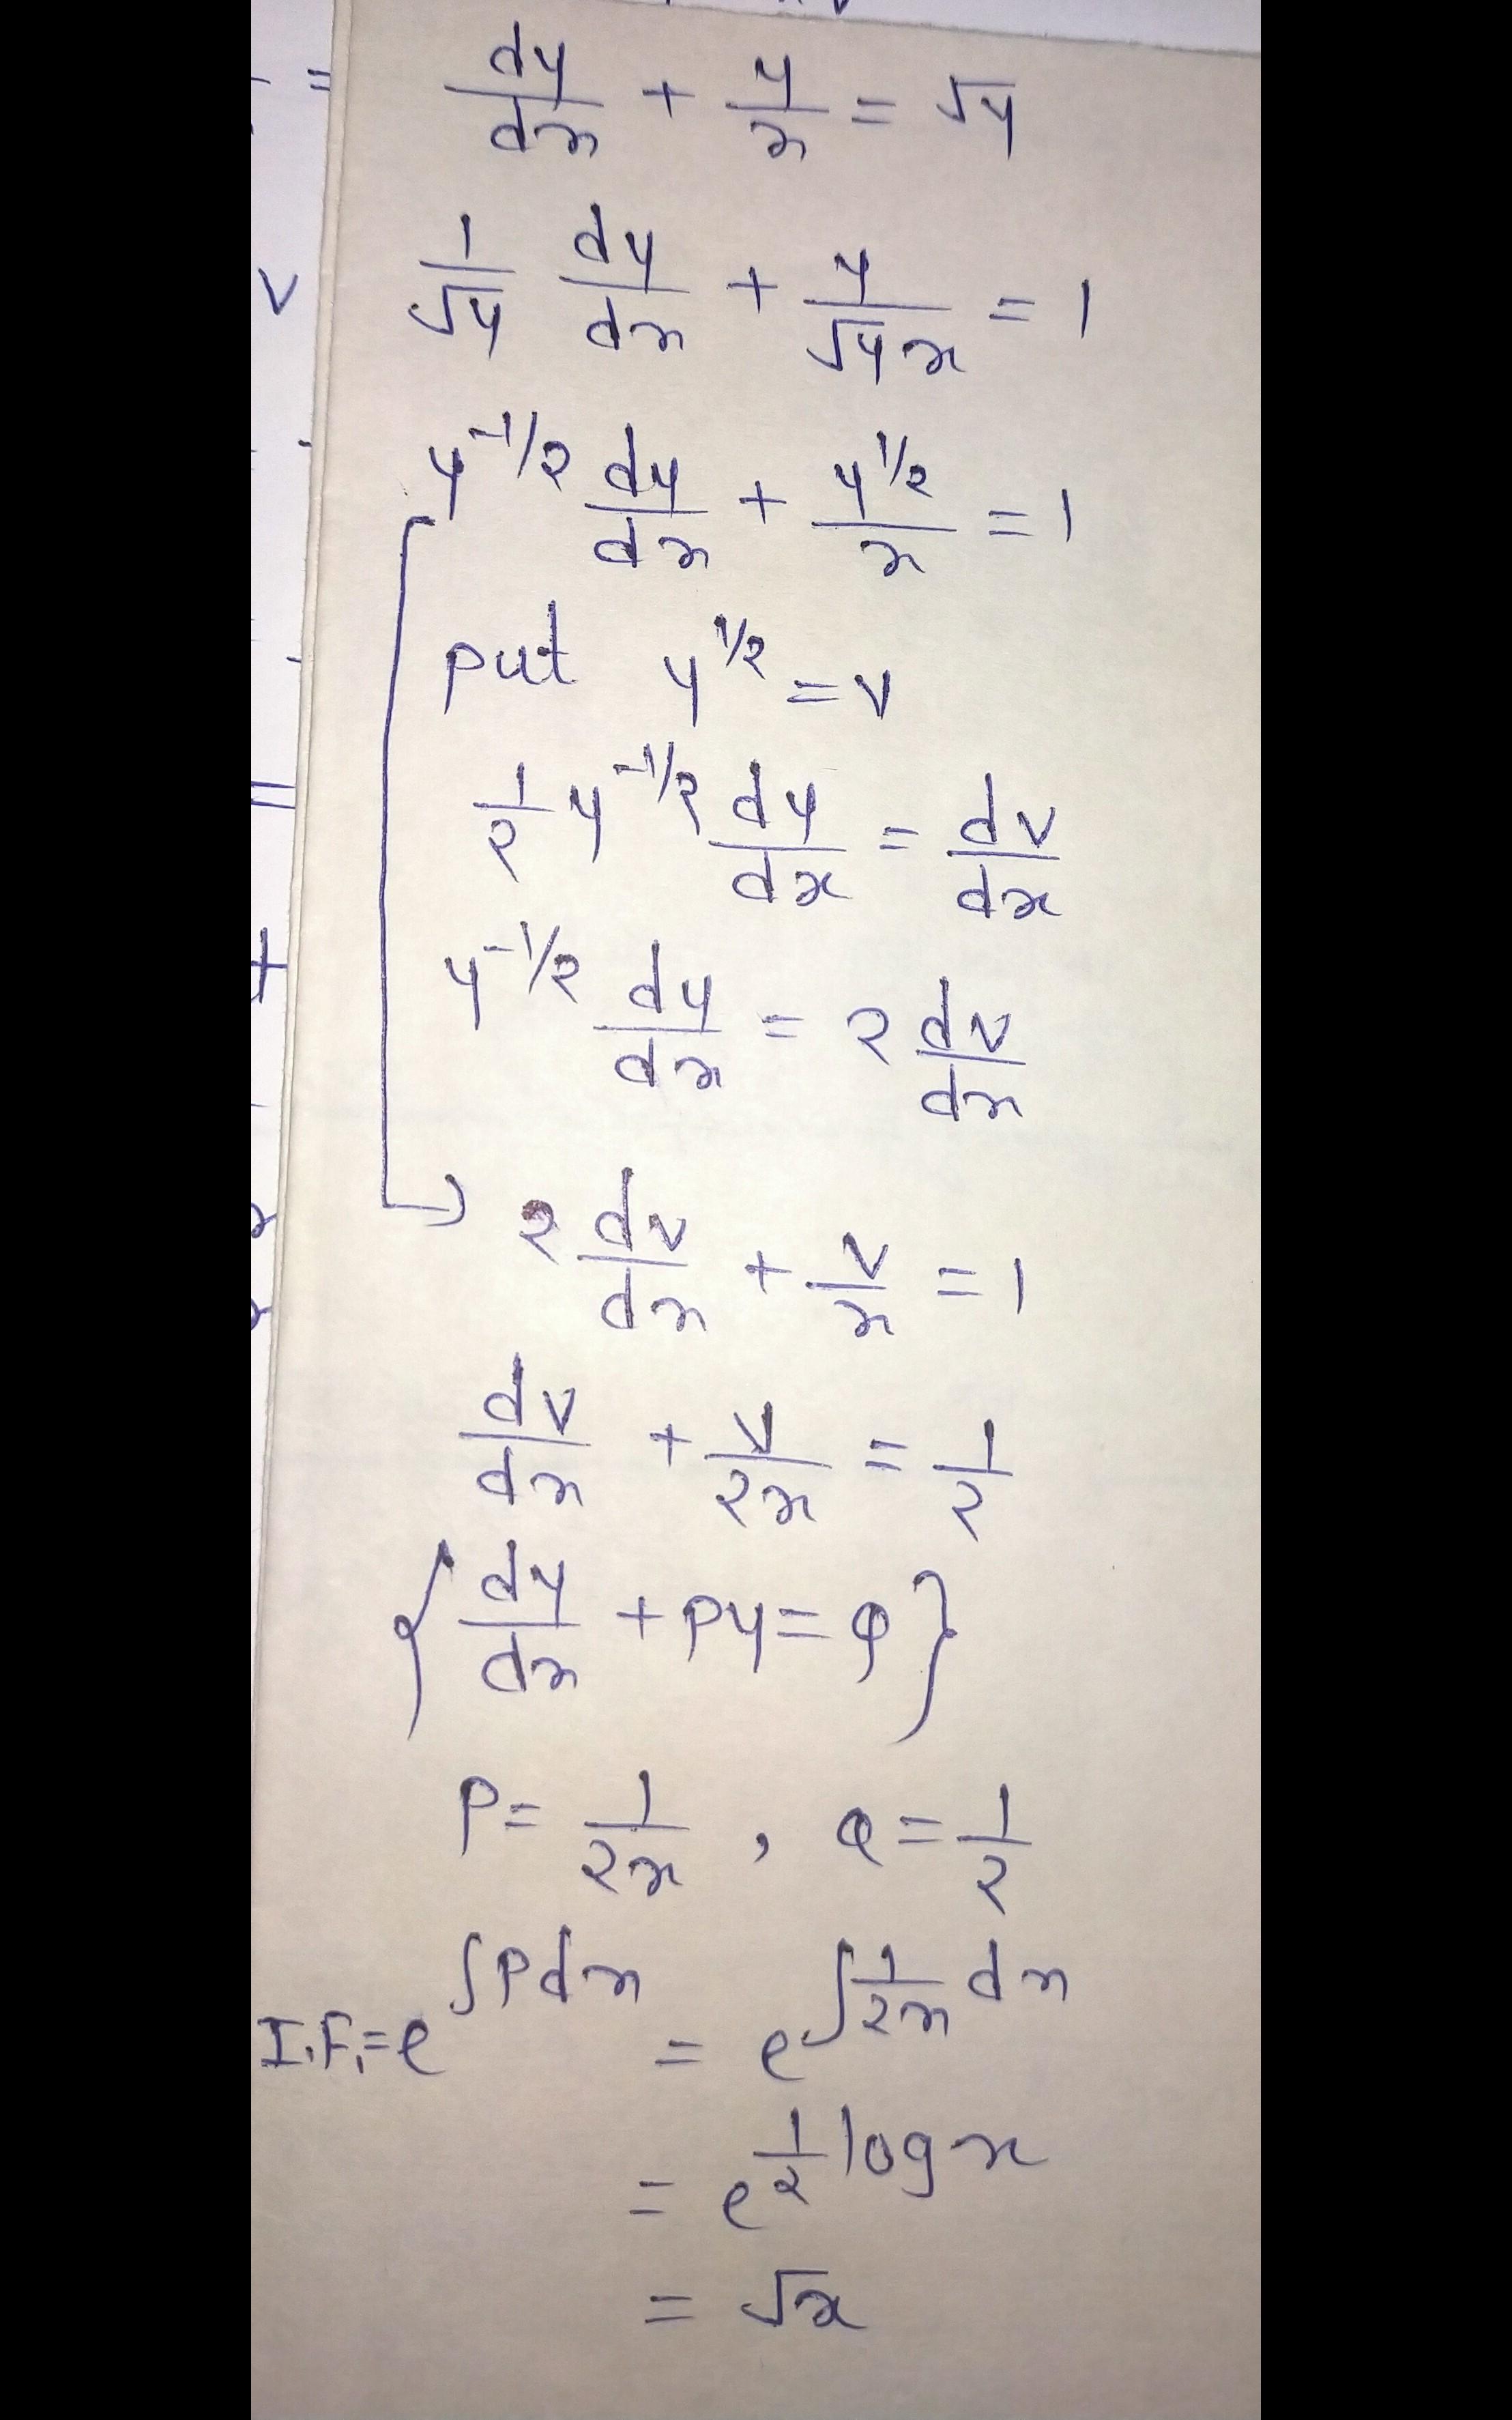 dy/dx + y/x = √y
1/√y dy/dx + y/(√y x) = 1
y^(-1/2) dy/dx + y^(1/2)/x = 1
put y^(1/2) = v
1/2 y^(-1/2) dy/dx = dv/dx
y^(-1/2) dy/dx = 2 dv/dx
2 dv/dx + v/x = 1
dv/dx + v/2x = 1/2
{dy/dx + Py = Q}
P = 1/2x , Q = 1/2
I.F. = e^(∫P dx) = e^(∫1/2x dx)
= e^(1/2 log x)
= √x